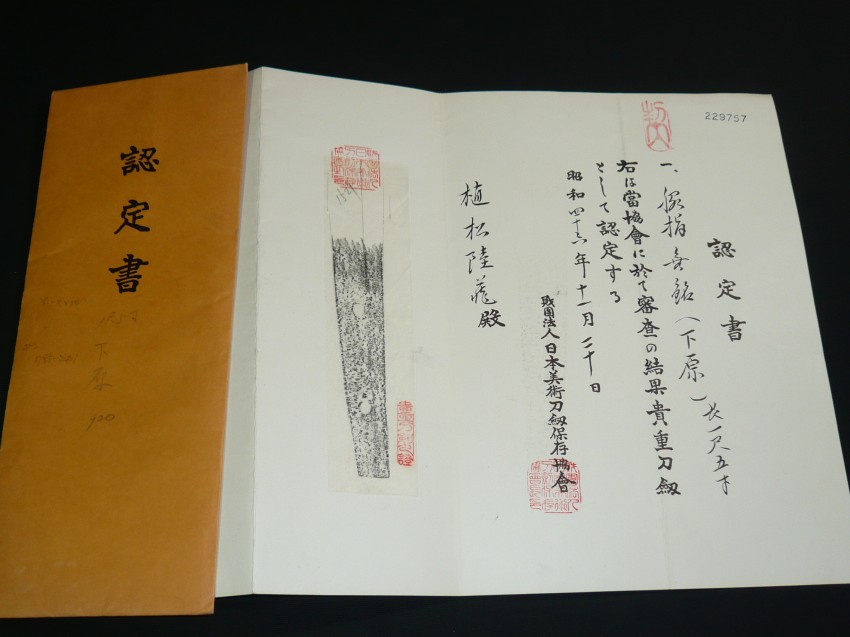 229757
認定書
一、脇指 無銘(下原)長一尺五寸
右は當協會に於て審査の結果貴重刀劔
として認定する
昭和四十六年十一月二十日
財團法人日本美術刀劔保存協會
植松陸蔵殿
認定書
下原
920